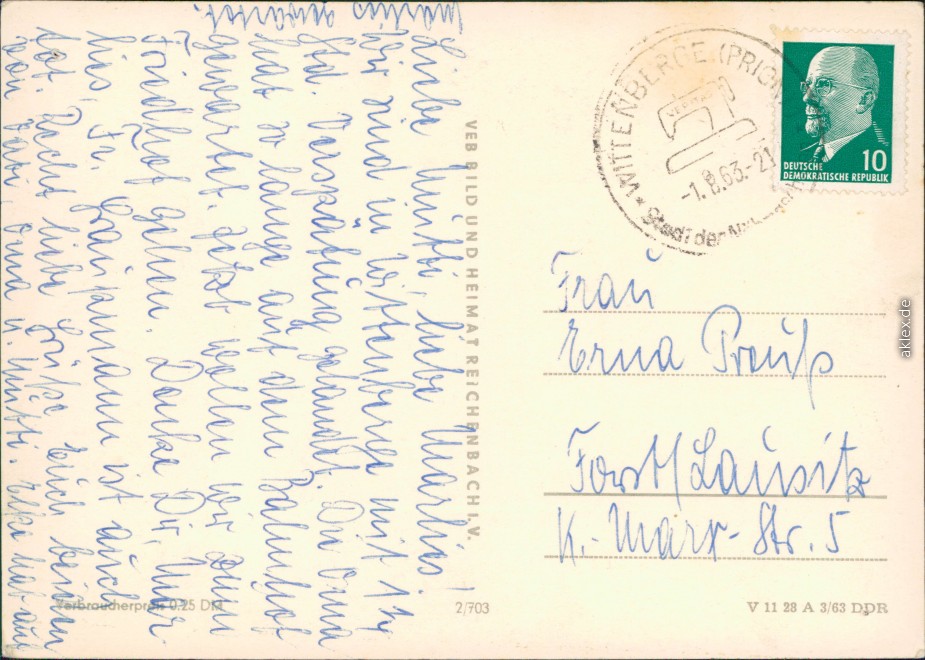 Liebe Mutti, liebe Marlies!
Wir sind in Wittenberge mit 1 1/4
Std. Verspätung gelandet. Die Oma
hat so lange auf dem Bahnhof
gewartet. Jetzt wollen wir zum
Friedhof gehen. Danke Dir, Mar-
lies, Fr. ist auch
tot. Recht liebe Grüße Euch beiden
von Vati, Oma u. Mutti. Elke hat auf
Marlies gewartet.
VEB BILD UND HEIMAT REICHENBACH I.V.
WITTENBERGE (PRIGN
-1.8.63.-21
Stadt der
DEUTSCHE
DEMOKRATISCHE REPUBLIK
10
Frau
Erna Preuß
Forst/Lausitz
K.-Marx-Str. 5
Verbraucherpreis 0.25 DM
2/703
V 11 28 A 3/63 DDR
aklex.de